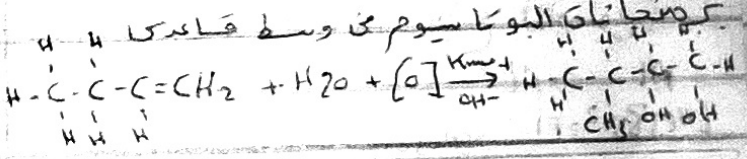 برمنجانات البوتاسيوم في وسط قاعدي
H H H H H H
H - C - C - C = CH2 + H2O + [O] KmnO4 → OH- H - C - C - C - C - H
H H H H CH3 OH OH